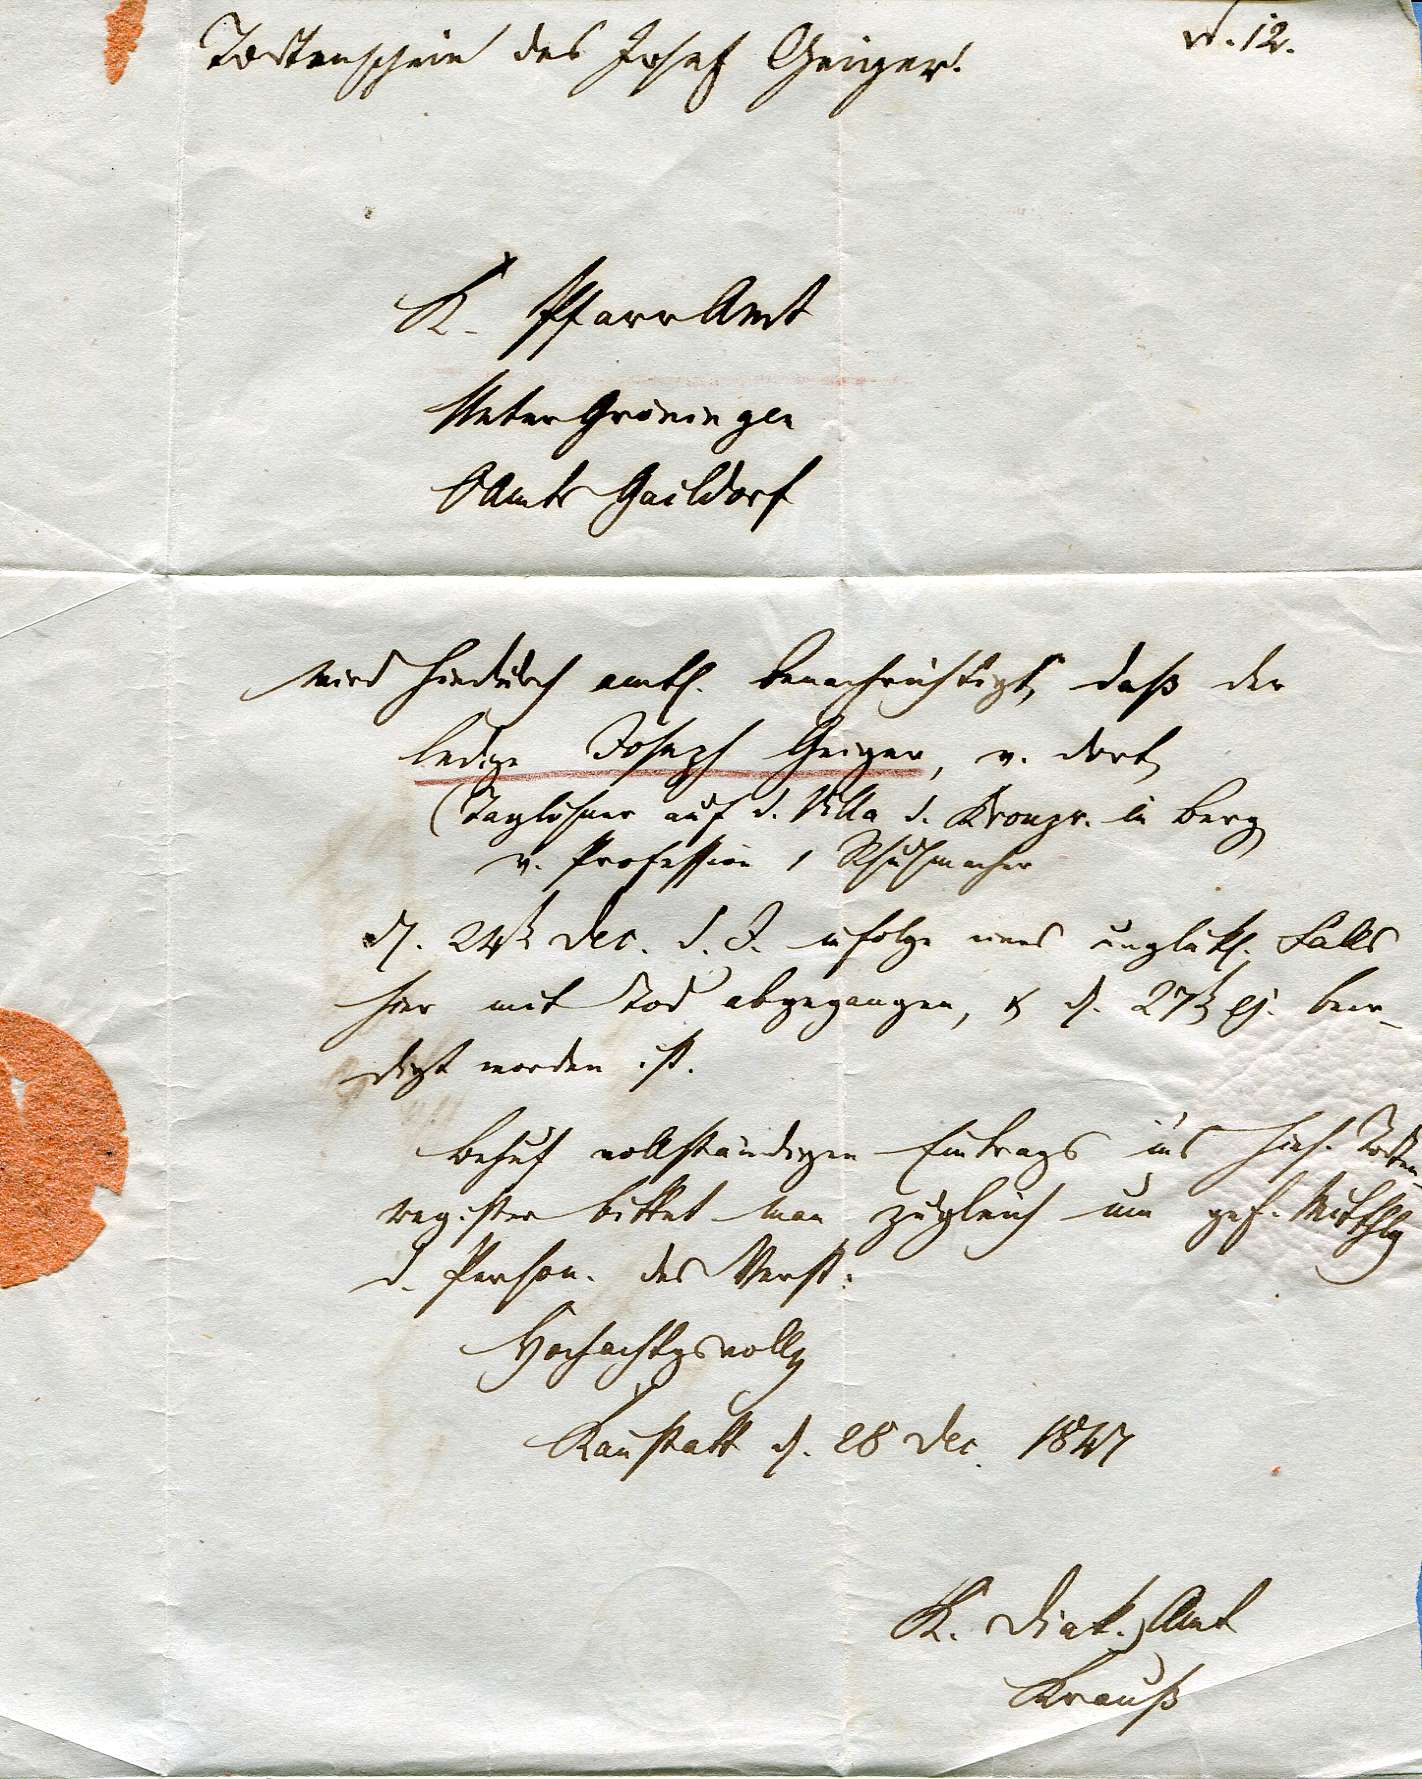 Todtenschein des Josef Geiger.
N. 12.
K. PfarrAmt
UnterGröningen
OAmts Gaildorf
wird hiedurch amtl. benachrichtigt, daß der
ledige Joseph Geiger, v. dort,
(Taglöhner auf d. Villa d. Kronpr. in Berg
v. Profession Schuhmacher
d. 24 Dec. d. J. infolge eines unglükl. Falls
hier mit Tod abgegangen, & d. 27 ej. beer-
digt worden ist.
Behuf vollständigen Eintrags ins hies. Todten-
register bittet man zugleich um gef. Mitthlg
d. Person. des Verst.
Hochachtgsvoll
Kanstatt d. 28 Dec. 1847
K. Diak. Amt
Krauß